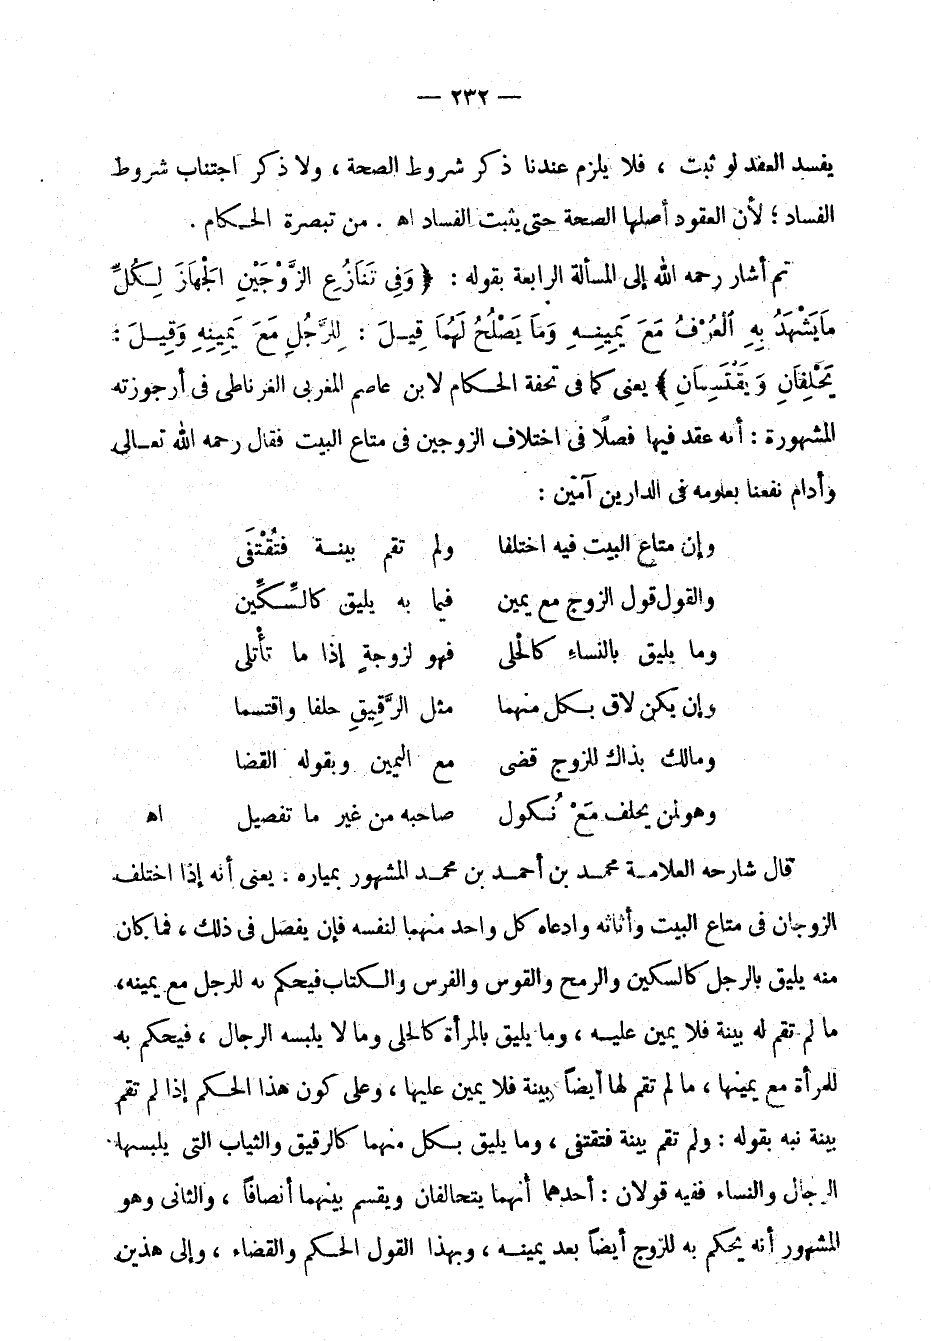 — ٢٣٢ —
يفسد العقد لو ثبت ، فلا يلزم عندنا ذكر شروط الصحة ، ولا ذكر اجتناب شروط
الفساد ؛ لأن العقود أصلها الصحة حتى يثبت الفساد اه . من تبصرة الحكام .
ثم أشار رحمه الله إلى المسألة الرابعة بقوله : ﴿ وَفِي تَنَازُعِ الزَّوْجَيْنِ الْجَهَازَ لِكُلٍّ
مَا يَشْهَدُ بِهِ الْعُرْفُ مَعَ يَمِينِهِ وَمَا يَصْلُحُ لَهُمَا قِيلَ : لِلرَّجُلِ مَعَ يَمِينِهِ وَقِيلَ :
يَحْلِفَانِ وَيَقْتَسِمَانِ ﴾ يعنى كما فى تحفة الحكام لابن عاصم المغربى الغرناطى فى أرجوزته
المشهورة : أنه عقد فيها فصلًا فى اختلاف الزوجين فى متاع البيت فقال رحمه الله تعالى
وأدام نفعنا بعلومه فى الدارين آمين :
وإن متاع البيت فيه اختلفا ولم تقم بينة فتُقْتفَى
والقول قول الزوج مع يمين فيما به يليق كالسِّكِّين
وما يليق بالنساء كالْحلى فهو لزوجةٍ إذا ما تأْتلى
وإن يكن لاق بكل منهما مثل الرَّقِيقِ حلفا واقتسما
ومالك بذاك للزوج قضى مع اليمين وبقوله القضا
وهو لمن يحلف مَعْ نُكول صاحبه من غير ما تفصيل اه
قال شارحه العلامة محمد بن أحمد بن محمد المشهور بمياره . يعنى أنه إذا اختلف
الزوجان فى متاع البيت وأثاثه وادعاه كل واحد منهما لنفسه فإن يفصل فى ذلك ، فما كان
منه يليق بالرجل كالسكين والرمح والقوس والفرس والكتاب فيحكم به للرجل مع يمينه،
ما لم تقم له بينة فلا يمين عليه ، وما يليق بالمرأة كالحلى وما لا يلبسه الرجال ، فيحكم به
للمرأة مع يمينها ، ما لم تقم لها أيضاً بينة فلا يمين عليها ، وعلى كون هذا الحكم إذا لم تقم
بينة نبه بقوله : ولم تقم بينة فتقتفى ، وما يليق بكل منهما كالرقيق والثياب التى يلبسها
الرجال والنساء ففيه قولان : أحدهما أنهما يتحالفان ويقسم بينهما أنصافاً ، والثانى وهو
المشهور أنه يحكم به للزوج أيضاً بعد يمينه ، وبهذا القول الحكم والقضاء ، وإلى هذين